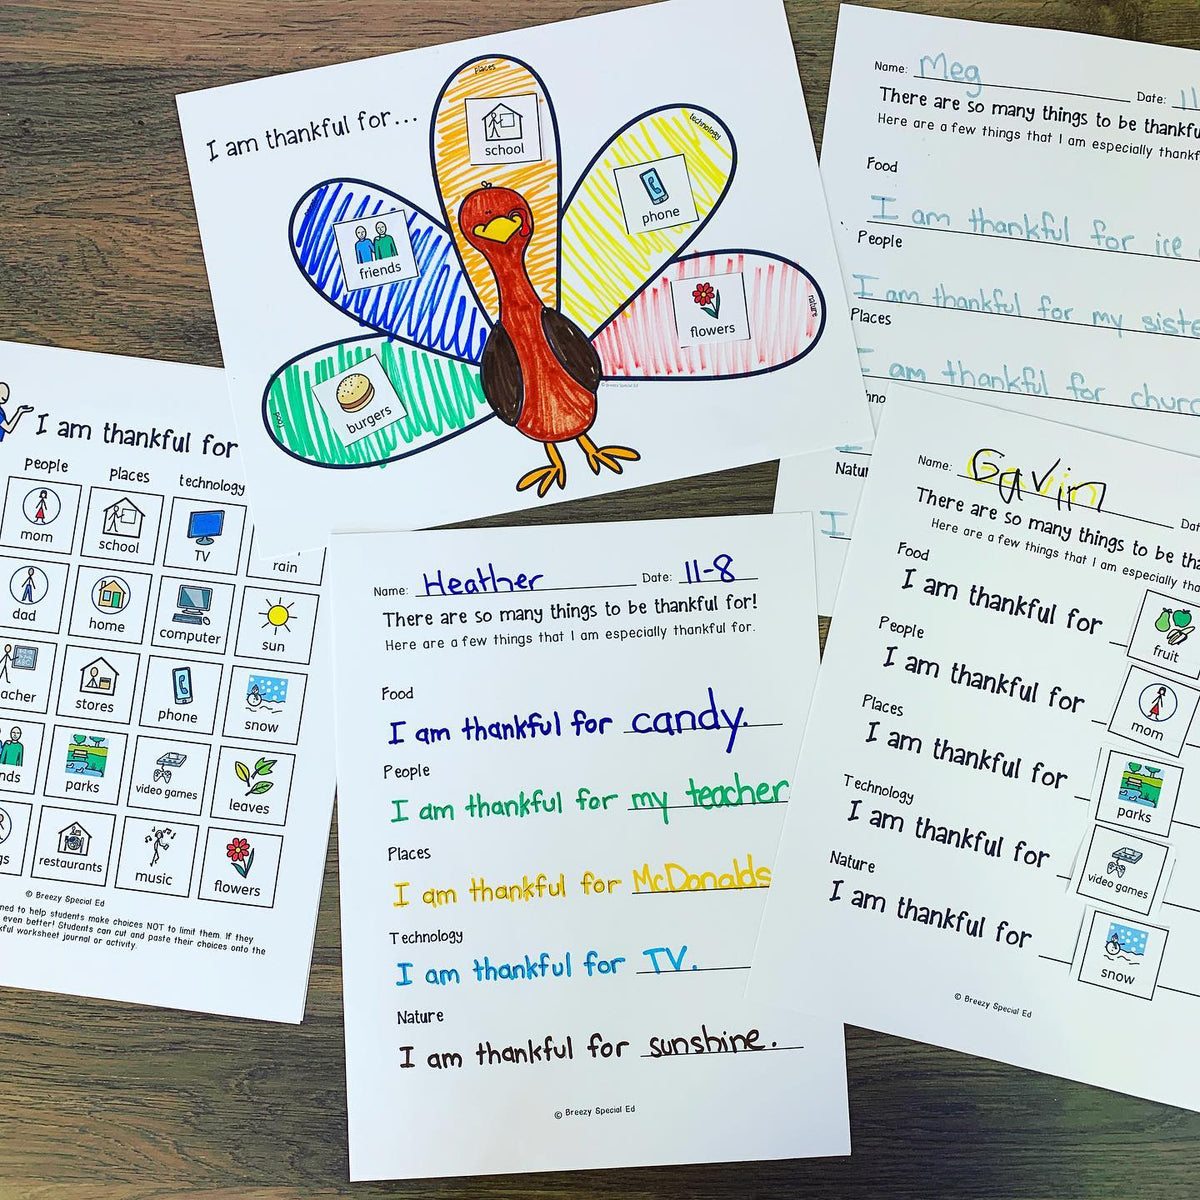 I am thankful for...
places
school
technology
phone
friends
nature
flowers
food
burgers
© Breezy Special Ed
Name: Meg Date: 11
There are so many things to be
Here are a few things that I am especially
Food
I am thankful for ice
People
I am thankful for my
Places
I am thankful for
I
I am thankful for
people places technology
mom school TV rain
dad home computer sun
stores phone snow
parks video games leaves
restaurants music flowers
© Breezy Special Ed
to help students make choices NOT to limit them. If they
even better! Students can cut and paste their choices onto the
worksheet journal or activity.
Name: Heather Date: 11-8
There are so many things to be thankful for!
Here are a few things that I am especially thankful for.
Food
I am thankful for candy.
People
I am thankful for my teacher
Places
I am thankful for McDonalds
Technology
I am thankful for TV.
Nature
I am thankful for sunshine.
© Breezy Special Ed
Name: Gavin
There are so many things to be
Here are a few things that I am especially
Food
I am thankful for fruit
People
I am thankful for mom
Places
I am thankful for parks
Technology
I am thankful for video games
Nature
I am thankful for snow
© Breezy Special Ed